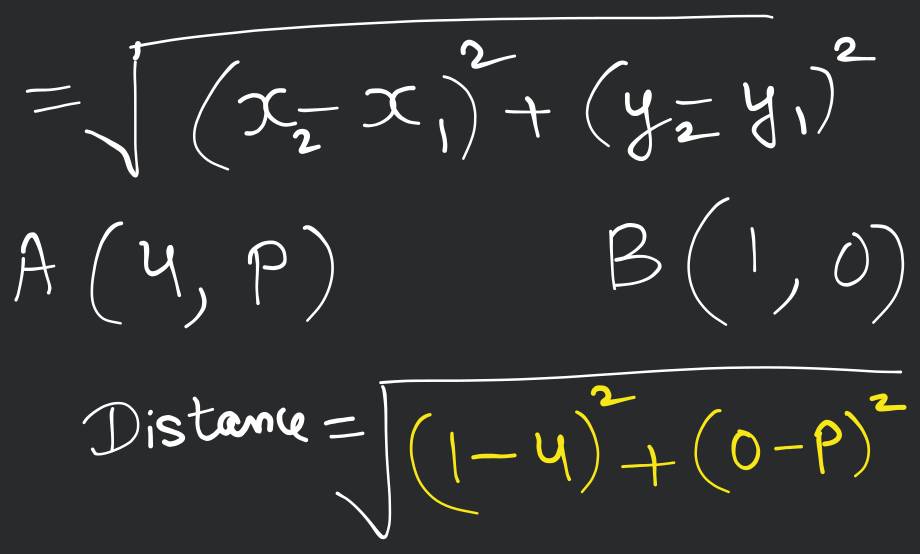 = √((x₂ - x₁)² + (y₂ - y₁)²)
A (4, P) B (1, 0)
Distance = √((1 - 4)² + (0 - P)²)